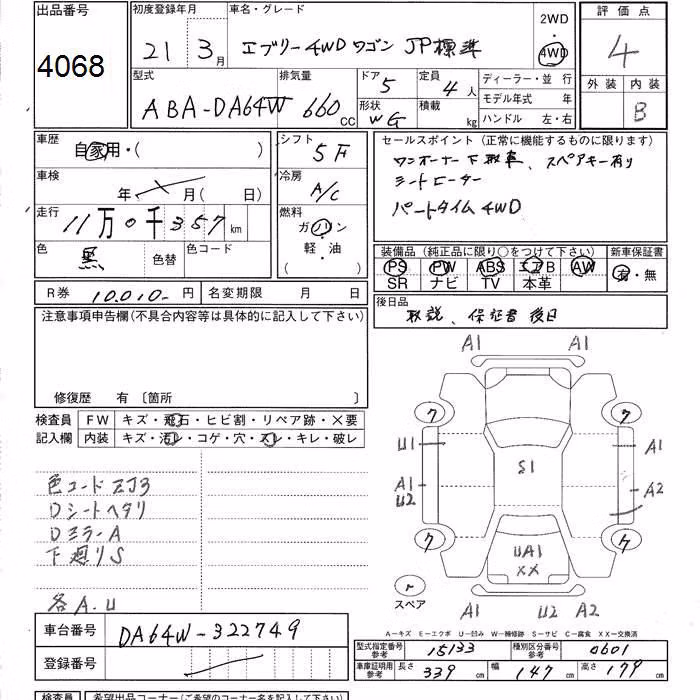 出品番号
4068
初度登録年月
21 3月
車名・グレード
エブリー4WD ワゴン JP標準
2WD
・
4WD
評価点
4
外装 内装
B
型式
ABA-DA64W
排気量
660 CC
ドア 5
形状 WG
定員 4人
積載 kg
ディーラー・並行
モデル年式 年
ハンドル 左・右
車歴
自家用・( )
車検
年 月( 日)
走行
11万0千357km
色
黒
色替
色コード
シフト
5F
冷房
A/C
燃料
ガソリン
軽・油
( )
セールスポイント(正常に機能するものに限ります)
ワンオーナー下取車、スペアキー有り
シートヒーター
パートタイム4WD
装備品(純正品に限り○をつけて下さい)
PS PW ABS エアB AW
SR ナビ TV 本革
新車保証書
有・無
R券 10,010-円
名変期限 月 日
後日品
取説、保証書 後日
注意事項申告欄(不具合内容等は具体的に記入して下さい)
修復歴 有〔箇所 〕
検査員
記入欄
FW キズ・飛石・ヒビ割・リペア跡・×要
内装 キズ・汚レ・コゲ・穴・スレ・キレ・破レ
色コード ZJ3
Dシートヘタリ
DミラーA
下廻りS
各A.U
A1 A1
ワ ワ
U1 A1
S1
A1 A2
U2
ワ ワ
UA1
XX
r
スペア
A1 U2 A2
A―キズ E―エクボ U―凹み W―補修跡 S―サビ C―腐食 XX―交換済
車台番号
DA64W-322749
登録番号
型式指定番号
参考
15133
種別区分番号
参考
0601
車庫証明用
参考
長さ 339 cm
幅 147 cm
高さ 179 cm
検査員
希望出品コーナー(ご希望のコーナー名を記入して下さい)